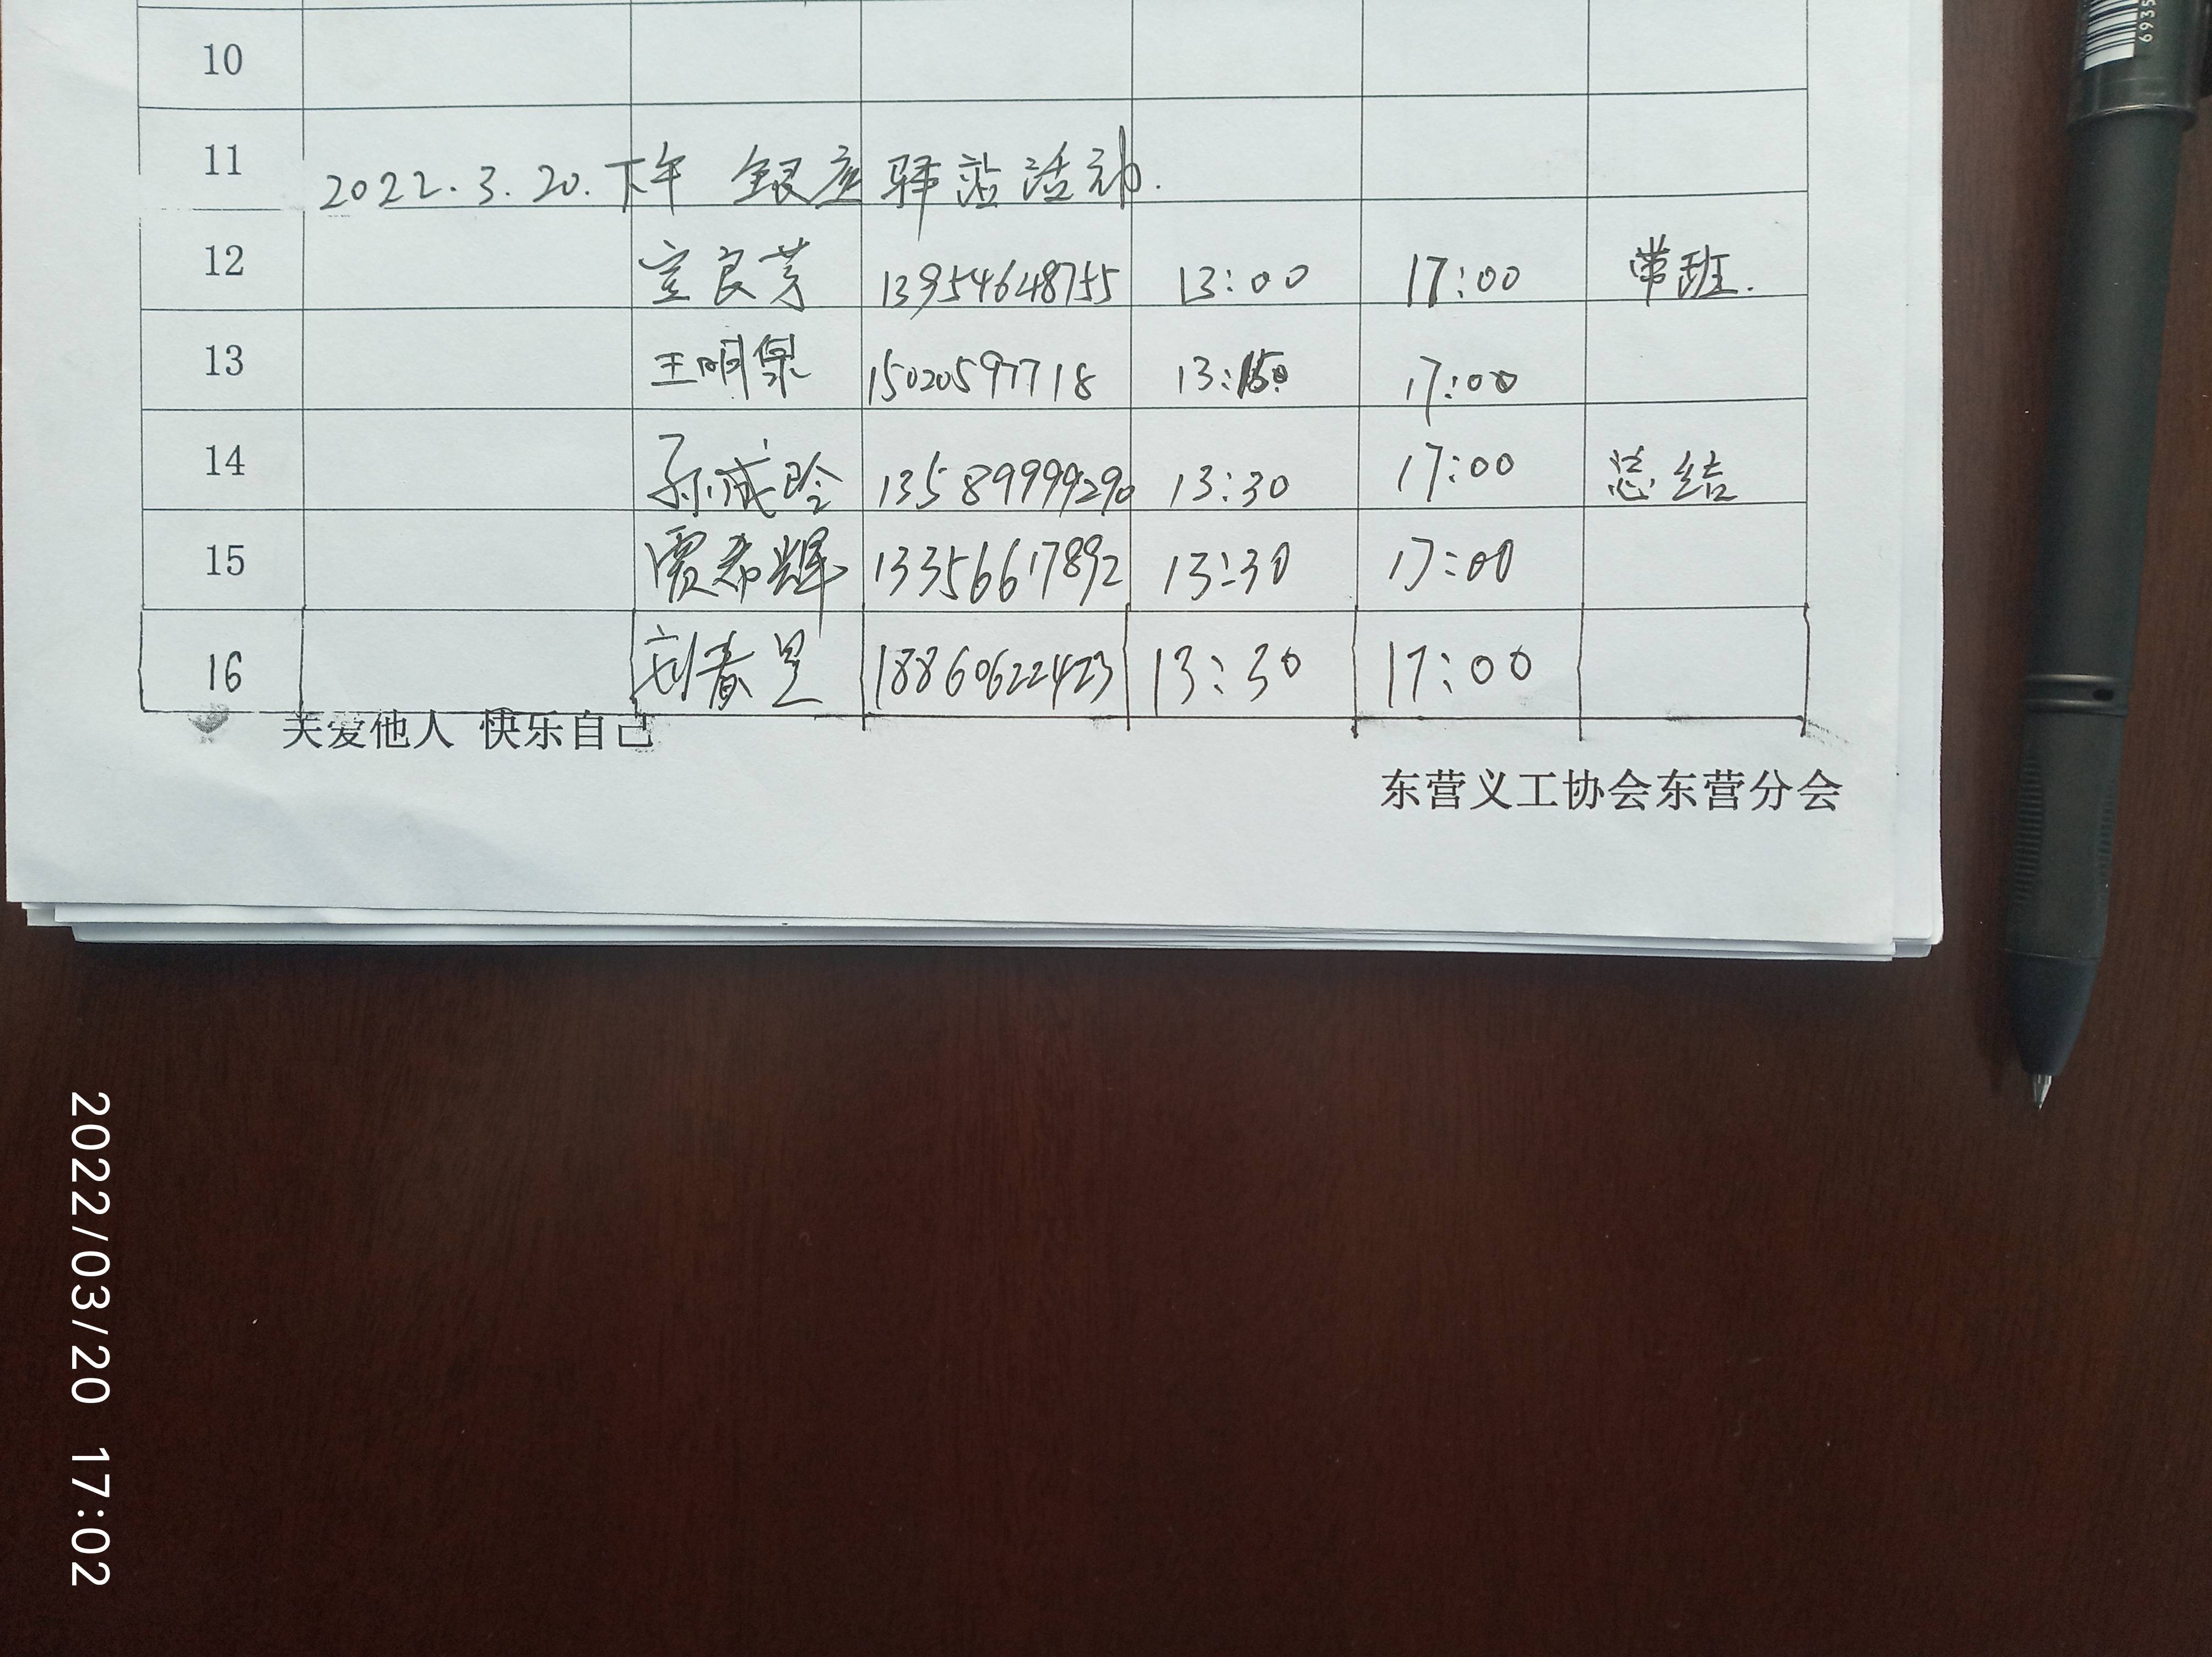 10
11 2022.3.20.下午 银座驿站活动.
12 宣良芳 13954648755 13:00 17:00 带班.
13 王明泉 15020597718 13: 17:00
14 孙成玲 13589999290 13:30 17:00 总结
15 贾希辉 13356617892 13:30 17:00
16 刘春 18860622423 13:30 17:00
关爱他人 快乐自己
东营义工协会东营分会
2022/03/20 17:02
6935